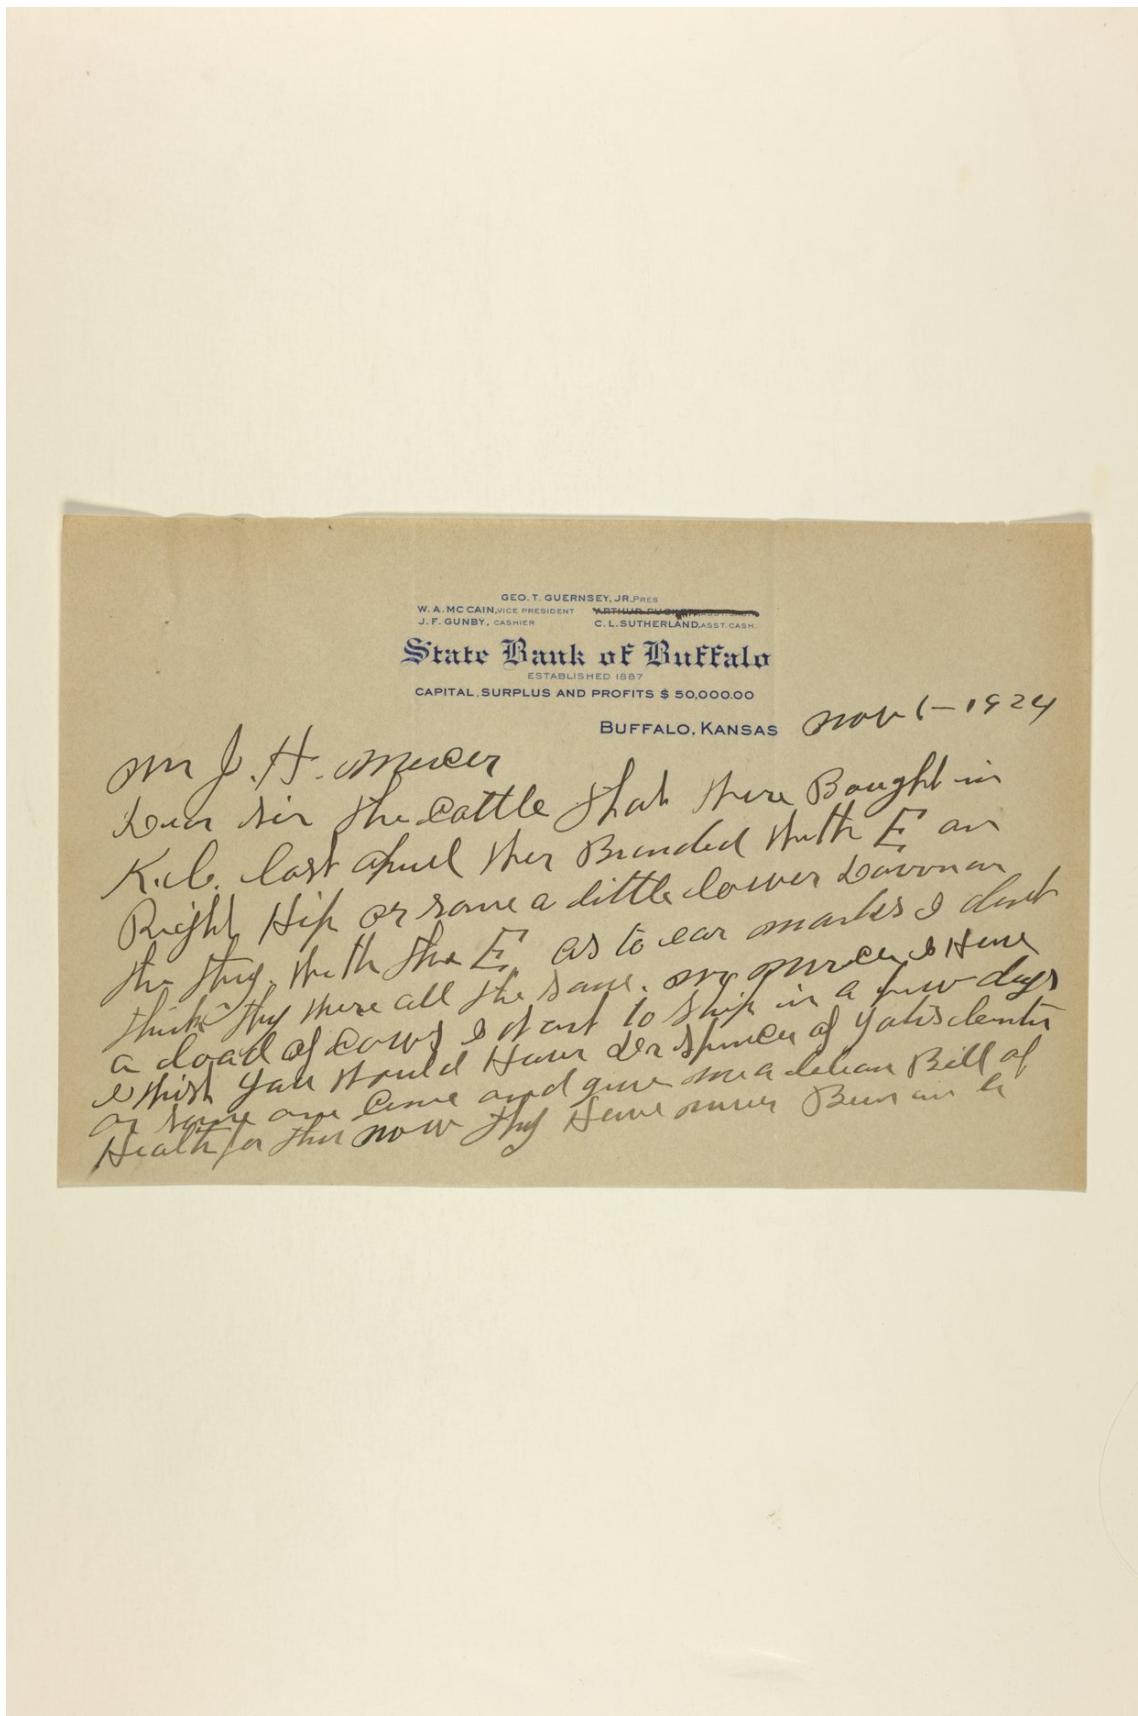 GEO. T. GUERNSEY, JR. PRES
W. A. MC CAIN, VICE PRESIDENT ARTHUR
J. F. GUNBY, CASHIER C. L. SUTHERLAND, ASST. CASH.
State Bank of Buffalo
ESTABLISHED 1887
CAPITAL, SURPLUS AND PROFITS $ 50,000.00
BUFFALO, KANSAS Nov 1-1924
Mr J. H. Mercer
Dear Sir The Cattle that were Bought in
K.C. last April wer Branded with E on
Right Hip or some a little lower Down on
the thy. with the E as to ear marks I dont
think thy were all the same. Mr Mercer I Have
a load of Cows I Want to Ship in a few days
I wish you would Have Dr Spencer of Yates Center
or some one Come and give me a clean Bill of
Health for them now thy Have never Been in